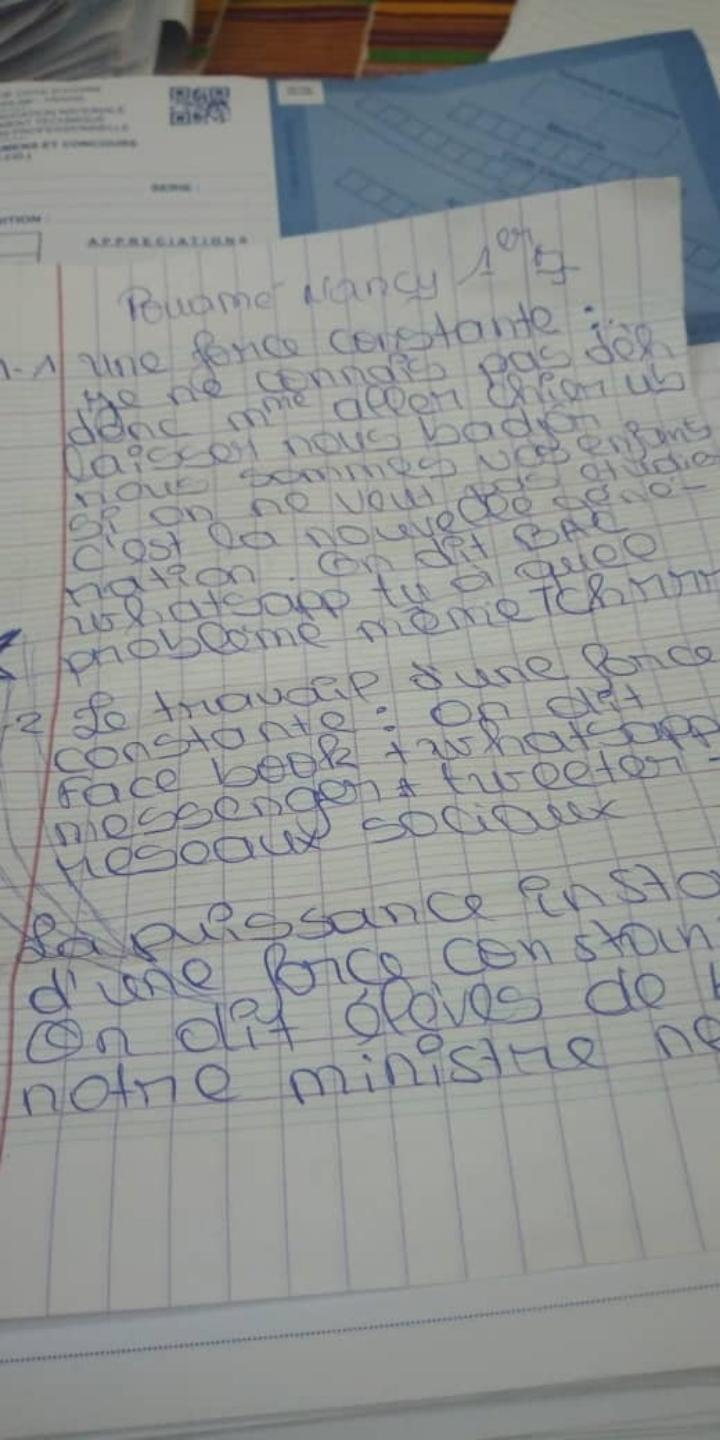 SERIE :
APPRECIATIONS
Nancy 1er
1-1 Une force constante :
je ne connais pas dêh
donc mme aller chier
laisser nous
nous sommes vos enfans
si on ne veut pas étudie
c'est la nouvelle géné-
ration. On dit BAC
whatsapp tu a quel
problème même Tchrrrr
-2 Le travail d'une force
constante : on dit
Face book + whatsapp
messenger + tweeter -
reseaux sociaux
La puissance insta
d'une force constan
On dit élèves de
notre ministre ne